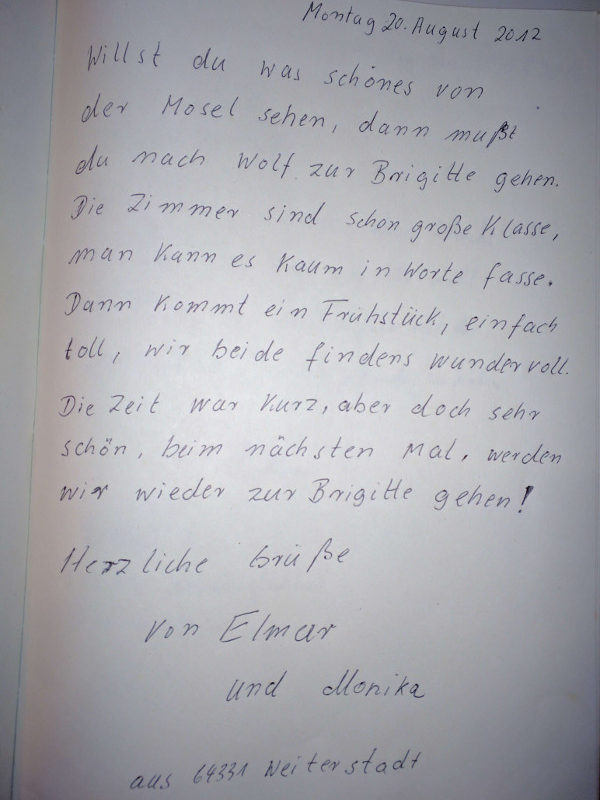 Montag 20. August 2012
Willst du was schönes von
der Mosel sehen, dann mußt
du nach Wolf zur Brigitte gehen.
Die Zimmer sind schon große Klasse,
man kann es kaum in Worte fasse.
Dann kommt ein Frühstück, einfach
toll, wir beide findens wundervoll.
Die Zeit war kurz, aber doch sehr
schön, beim nächsten Mal, werden
wir wieder zur Brigitte gehen!
Herzliche Grüße
von Elmar
und Monika
aus 64331 Weiterstadt